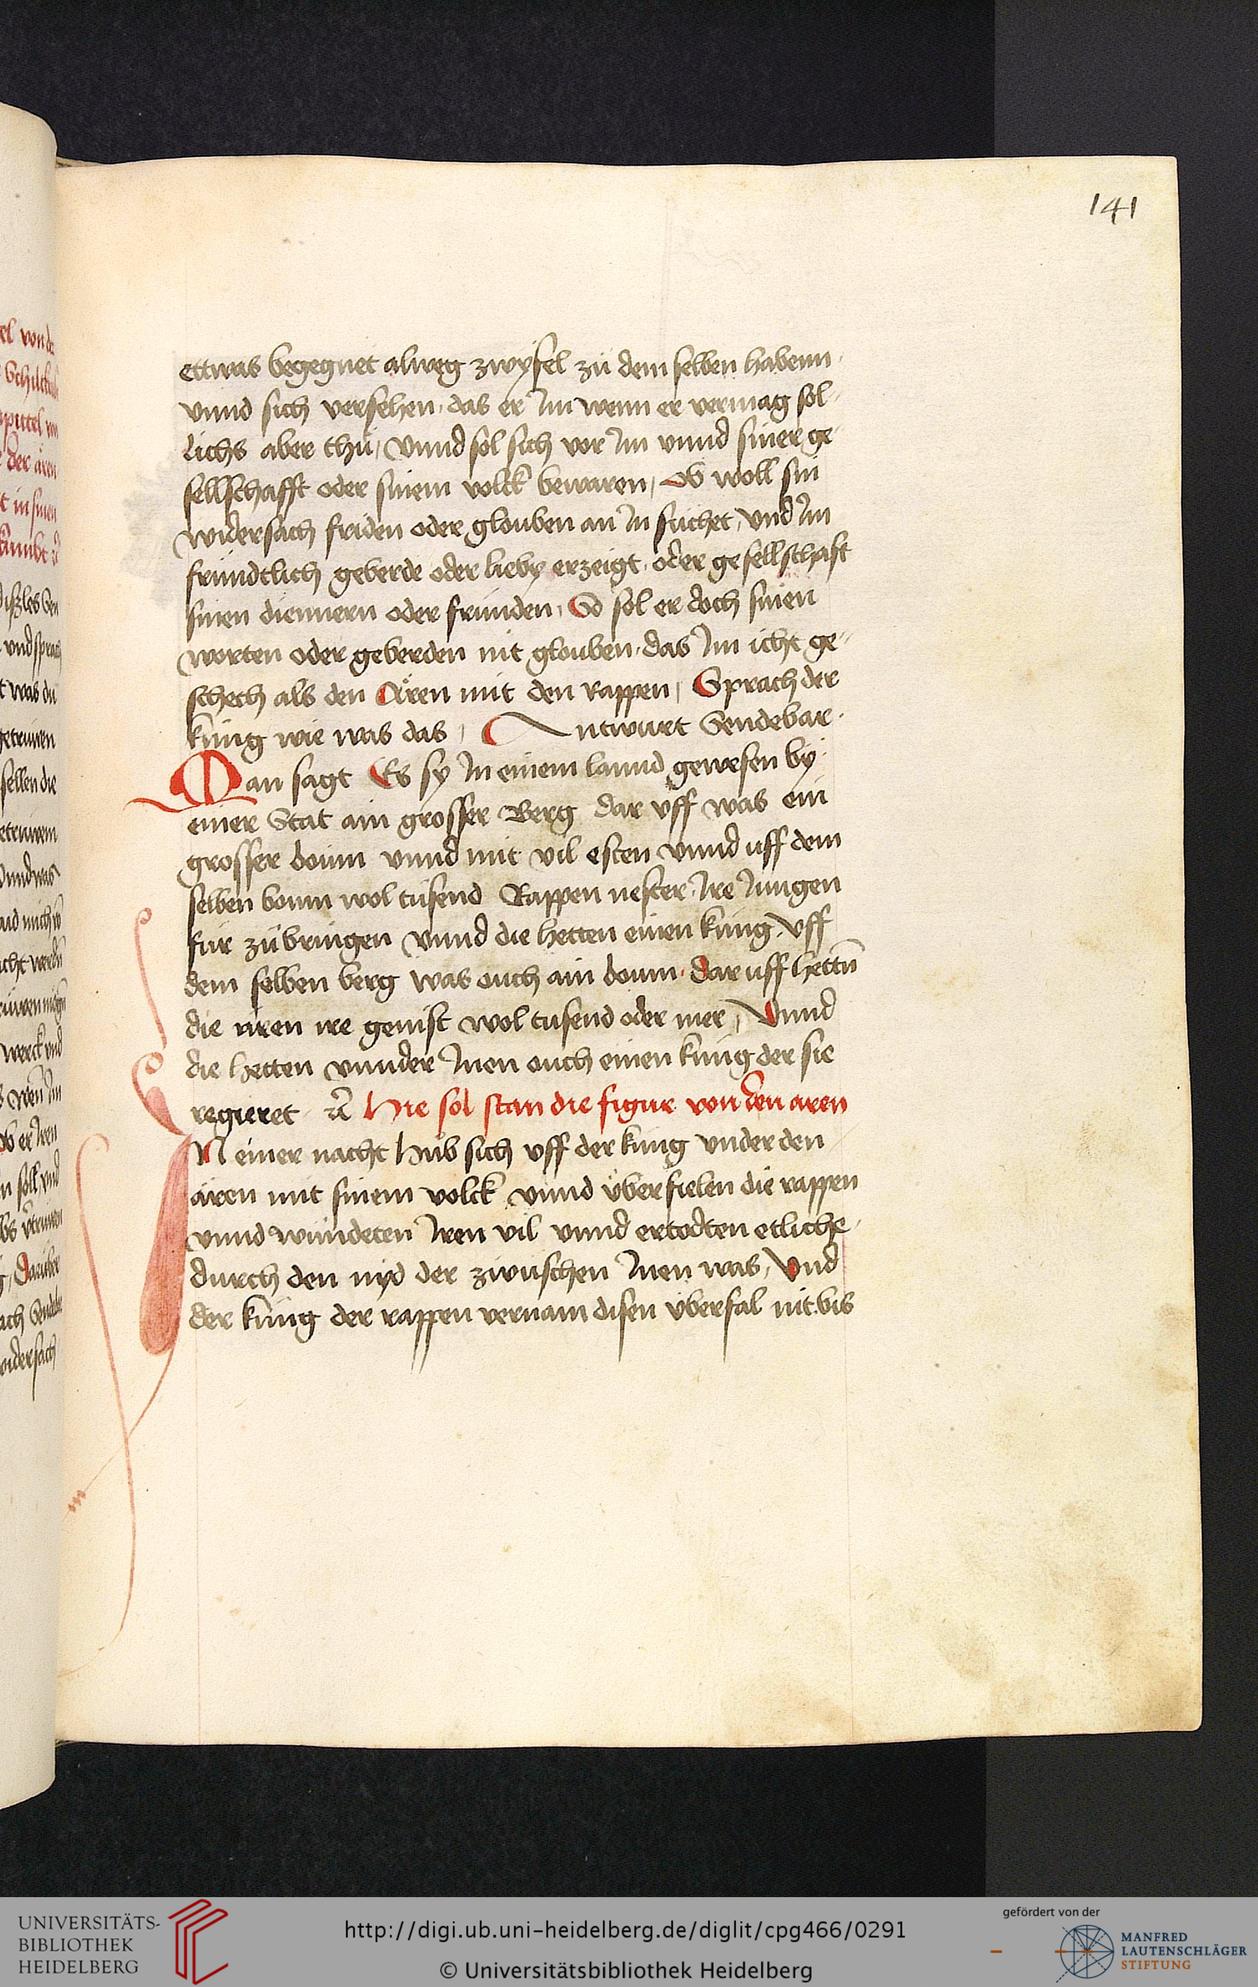 141
ettwas begegnet alweg zwyfel zu dem selben habenn
vnnd sich versehen das er Im wenn er vermag sol-
lichs aber thu / Vnnd sol sich vor Im vnnd siner ge-
sellschafft oder sinem volck bewaren / Ob woll sin
widersach friden oder glouben an In suchet / vnd Im
frundtlich geberde oder lieby erzeigt oder gesellschafft
sinen diennern oder frunden / So sol er doch sinen
worten oder geberden nit glouben das Im icht ge-
schech als den Aren mit den rappen / Sprach der
kung wie was das / Antwurt Sendebar
Man sagt Es sy In einem lannd gewesen by
einer Stat ain grosser Berg dar vff was ein
grosser boum vnnd mit vil esten vnnd uff dem
selben boum wol tusend Rappen nester Ire Jungen
fur zu bringen vnnd die hetten einen kung Vff
dem selben berg was ouch ain boum dar uff hettn̄
die aren ire genist wol tusend oder mer / Vnnd
die hetten vnnder Inen ouch einen kung der sie
regieret Hie sol stan die figur von den aren
IN einer nacht hub sich uff der kung vnder den
ären mit sinem volck vnnd überfielen die rappen
vnnd wundeten Iren vil vnnd ertodten etliche
durch den nyd der zwuschen Inen was / Vnd
der kung der rappen vernam disen vberfal nit bis
UNIVERSITÄTS-
BIBLIOTHEK
HEIDELBERG
http://digi.ub.uni-heidelberg.de/diglit/cpg466/0291
© Universitätsbibliothek Heidelberg
gefördert von der
MANFRED
LAUTENSCHLÄGER
STIFTUNG